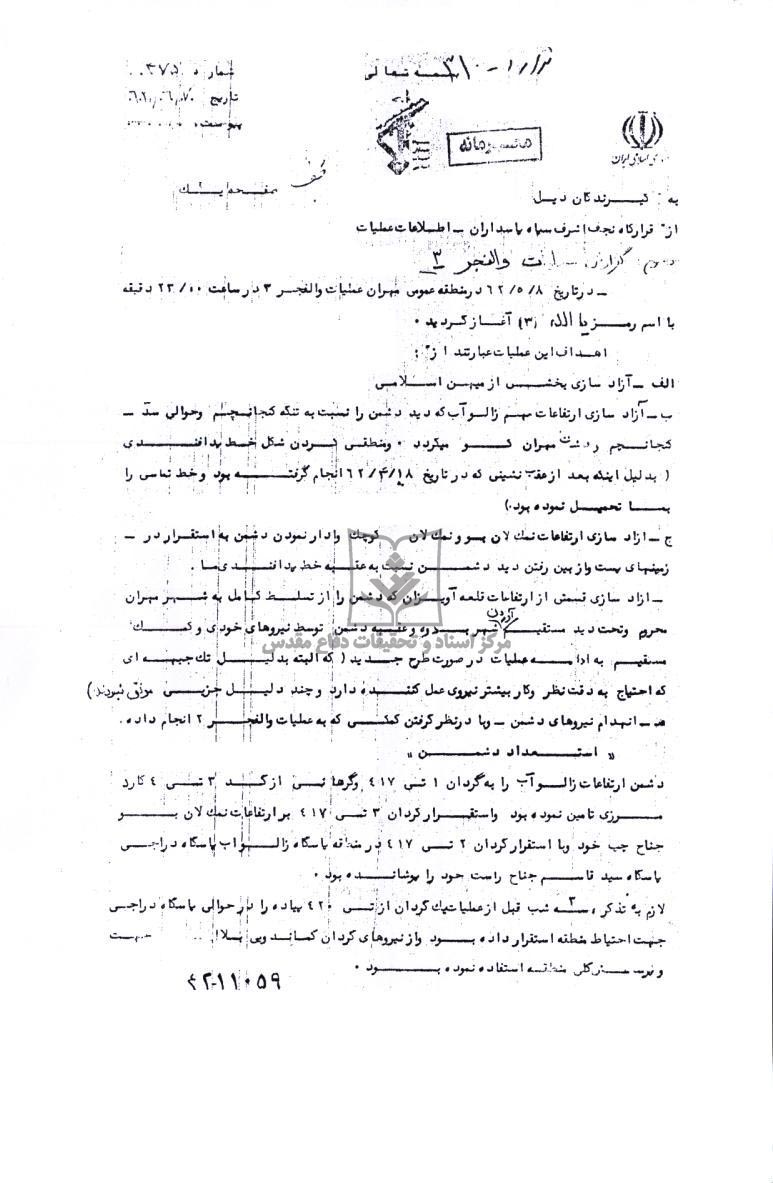 بسمه تعالی
شماره
تاریخ
پیوست
محرمانه
صفحه یک
به : گیرندگان ذیل
از : قرارگاه نجف اشرف سپاه پاسداران ــ اطلاعات عملیات
گزارش والفجر ۳
ــ در تاریخ ۶۲/۵/۸ در منطقه عمومی مهران عملیات والفجر ۳ در ساعت ۲۳/۰۰ دقیقه
با اسم رمز یا الله (۳) آغاز گردید .
اهداف این عملیات عبارتند از :
الف ــ آزاد سازی بخشی از میهن اسلامی
ب ــ آزاد سازی ارتفاعات مهم زالوآب که دید دشمن را نسبت به تنگه کنجانچم وحوالی سد ــ
کنجانچم و دشت مهران کور میگردد . ومنطقی کردن شکل خط پدافندی
( بدلیل اینکه بعد از عقب نشینی که در تاریخ ۶۲/۴/۱۸ انجام گرفته بود وخط تماسی را
بما تحمیل نموده بود.)
ج ــ ازاد سازی ارتفاعات نمک لان بو و نمک لان کوچک وادار نمودن دشمن به استقرار در ــ
زمینهای پست واز بین رفتن دید دشمن نسبت به عقبه خط پدافندی ما .
ــ ازاد سازی قسمتی از ارتفاعات قلعه آویزان که دشمن را از تسلط کامل به شهر مهران
محروم وتحت دید مستقیم آوردن شهر بدره وعقبه دشمن توسط نیروهای خودی و کمک
مستقیم به ادامه عملیات در صورت طرح جدید ( که البته بدلیل تک جبهه ای
که احتیاج به دقت نظر وکار بیشتر نیروی عمل کننده دارد و چند دلیل جزیی موفق نبودند.)
هـ ــ انهدام نیروهای دشمن ــ وبا درنظر گرفتن کمکی که به عملیات والفجر ۲ انجام داده .
" استعداد دشمن "
دشمن ارتفاعات زالوآب را به گردان ۱ تیپ ۴۱۷ وگرهانی از گد ۳ تیپ ۴ گارد
مرزی تامین نموده بود واستقرار گردان ۳ تیپ ۴۱۷ بر ارتفاعات نمک لان بو
جناح چپ خود وبا استقرار گردان ۲ تیپ ۴۱۷ در منطقه پاسگاه زالواب پاسگاه دراجی
پاسگاه سید قاسم جناح راست خود را پوشانده بود .
لازم به تذکر ، سه شب قبل از عملیات یک گردان از تیپ ۴۲۰ پیاده را در حوالی پاسگاه دراجی
جهت احتیاط منطقه استقرار داده بود واز نیروهای گردان کماندویی
کلی منطقه استفاده نموده بود .
۴۲-۱۱۰۵۹
مرکز اسناد و تحقیقات دفاع مقدس